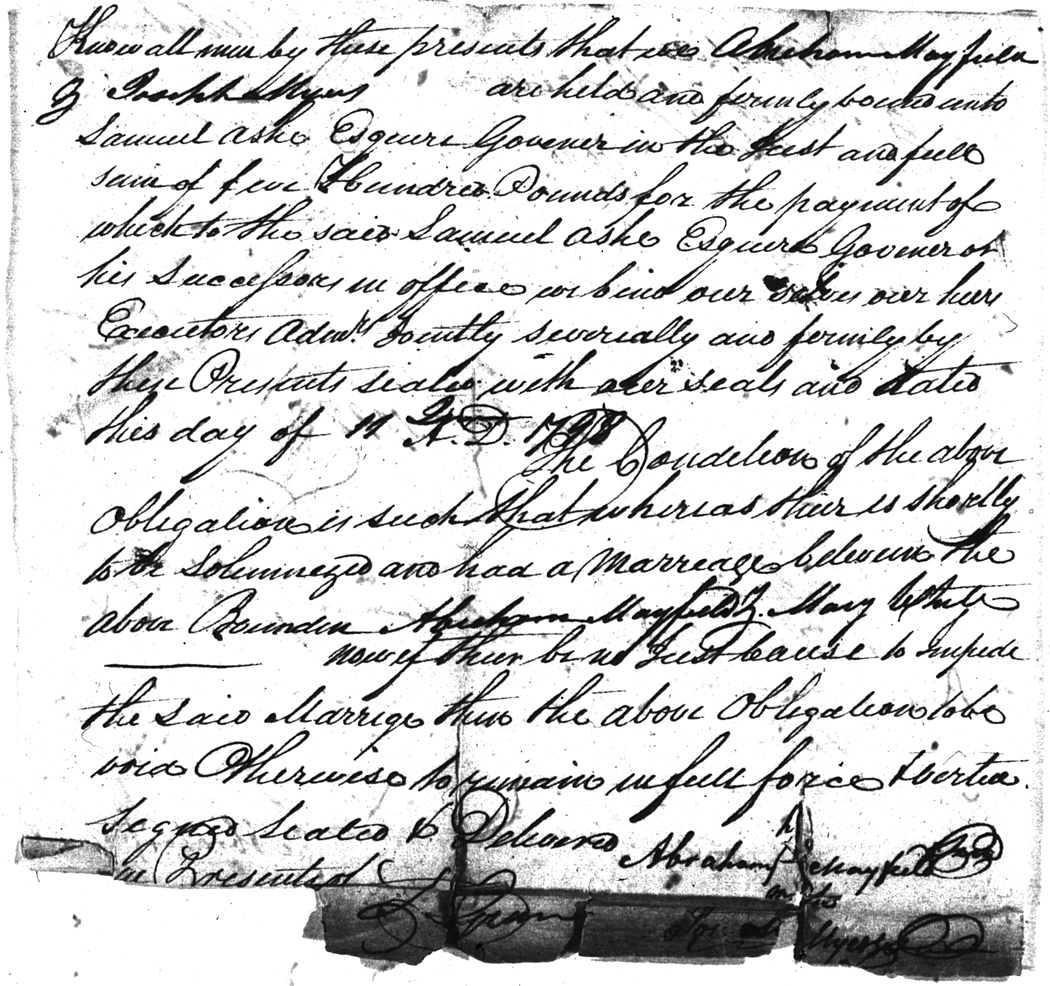 Know all men by these presents that we Abraham Mayfield
& Joseph Myers are held and firmly bound unto
Samuel Ashe Esquire Govener in the Just and full
sum of five Hundred Pounds for the payment of
which to the said Samuel Ashe Esquire Govener or
his Successors in office we bind our selves our heirs
Executors Adm.rs Jointly severially and firmly by
these Presents sealed with our seals and dated
this day of 11 A.D. 1798
The Condition of the above
Obligation is such that whereas their is shortly
to be Solemnezed and had a Marriage between the
above Bounden Abraham Mayfield & Mary White
now if their be no Just Cause to impede
the said Marrige then the above Obligation to be
void Otherwise to remain in full force & vertue.
Segned Sealed & Delivered
in Presents of
Abraham his Mayfield
mark
Myers